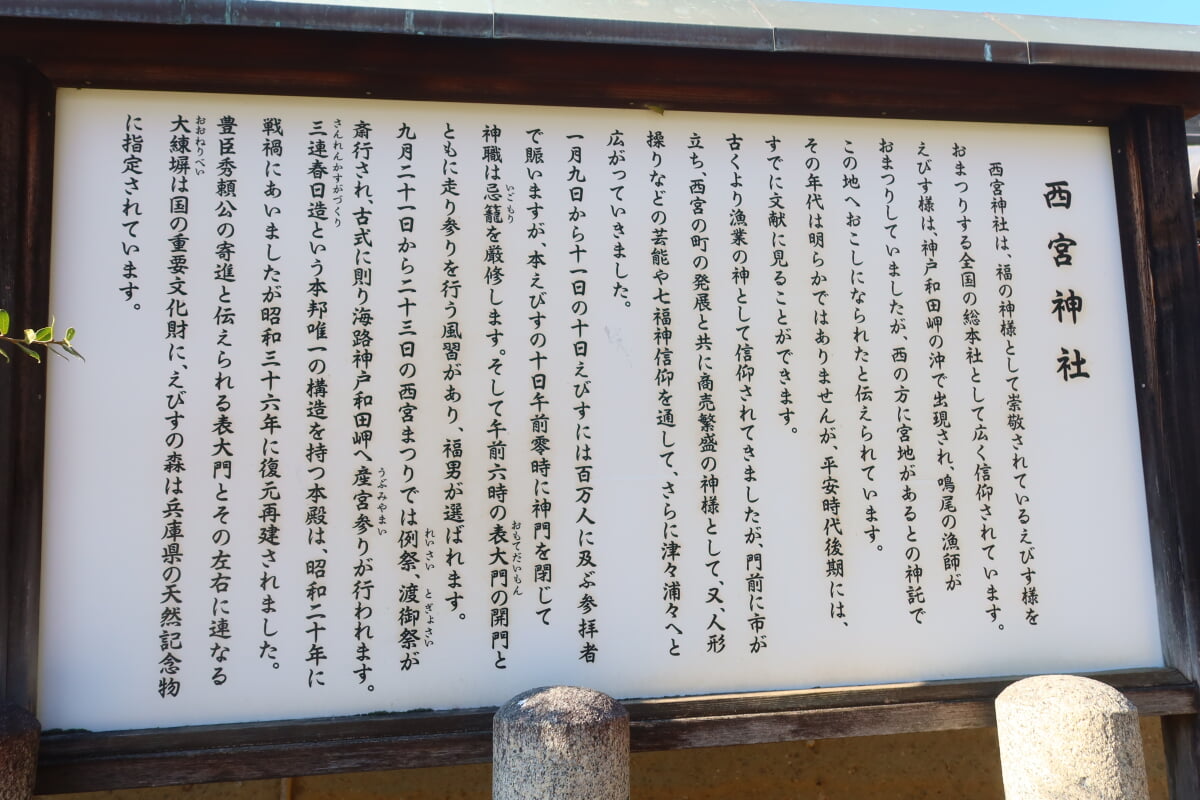 西宮神社
西宮神社は、福の神様として崇敬されているえびす様を
おまつりする全国の総本社として広く信仰されています。
えびす様は、神戸和田岬の沖で出現され、鳴尾の漁師が
おまつりしていましたが、西の方に宮地があるとの神託で
この地へおこしになられたと伝えられています。
その年代は明らかではありませんが、平安時代後期には、
すでに文献に見ることができます。
古くより漁業の神として信仰されてきましたが、門前に市が
立ち、西宮の町の発展と共に商売繁盛の神様として、又、人形
操りなどの芸能や七福神信仰を通して、さらに津々浦々へと
広がっていきました。
一月九日から十一日の十日えびすには百万人に及ぶ参拝者
で賑いますが、本えびすの十日午前零時に神門を閉じて
神職は忌籠を厳修します。そして午前六時の表大門の開門と
いごもり
おもてだいもん
ともに走り参りを行う風習があり、福男が選ばれます。
九月二十一日から二十三日の西宮まつりでは例祭、渡御祭が
れいさい とぎょさい
斎行され、古式に則り海路神戸和田岬へ産宮参りが行われます。
うぶみやまい
三連春日造という本邦唯一の構造を持つ本殿は、昭和二十年に
さんれんかすがづくり
戦禍にあいましたが昭和三十六年に復元再建されました。
豊臣秀頼公の寄進と伝えられる表大門とその左右に連なる
大練塀は国の重要文化財に、えびすの森は兵庫県の天然記念物
おおねりべい
に指定されています。